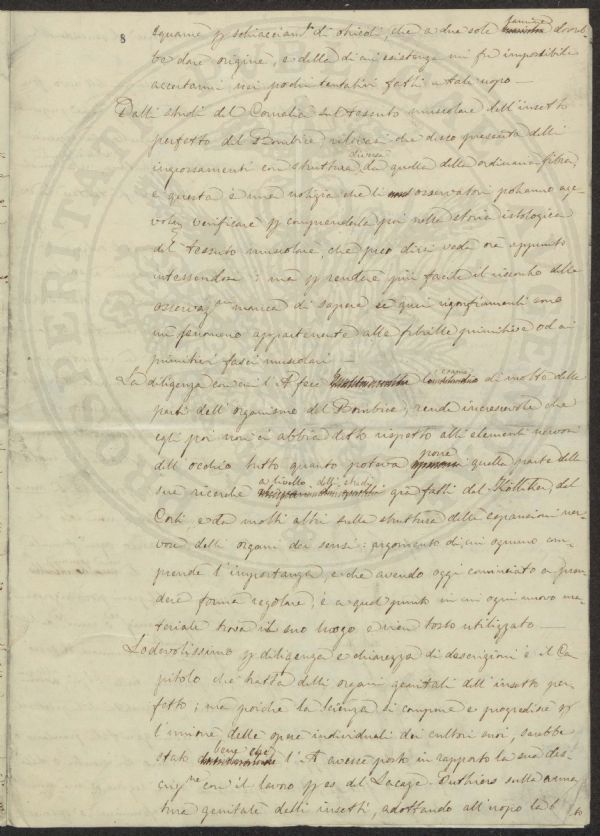 8
squame p schiacciamto di otricoli, che a due sole famiglie dovreb-
be dare origine, e della di cui esistenza mi fu impossibile
accertarmi nei pochi tentativi fatti a tale uopo —
Dalli studi del Cornalia sul tessuto muscolare dell'insetto
perfetto del Bombice rilevasi che desso presenta delli
ingrossamenti con struttura diversa da quella della ordinaria fibra,
e questa è una notizia che li osservatori potranno age-
voln verificare p comprenderla poi nella storia istologica
del tessuto muscolare, che può dirsi veda ora appunto
intessendosi: ma p rendere più facile il riscontro delle
osservazni manca di sapere se quei rigonfiamenti sono
un fenomeno appartenente alle fibrille primitive od ai
primitivi fasci muscolari —
La diligenza con cui l'A fece l'esame di molte delle
parti dell'organismo del Bombice, rende increscevole che
egli poi non ci abbia detto rispetto alli elementi nervosi
dell'occhio tutto quanto poteva porre quella parte delle
sue ricerche a livello delli studj già fatti dal Kölliker, dal
Corti, e da molti altri sulla struttura delle espansioni ner-
vose delli organi dei sensi: argomento di cui ognuno com-
prende l'importanza, e che avendo oggi cominciato a pren-
dere forma regolare, è a quel punto in cui ogni nuovo ma-
teriale trova il suo luogo e vien tosto utilizzato —
Lodevolissimo p diligenza e chiarezza di descrizioni è il Ca-
pitolo che tratta delli organi genitali dell'insetto per-
fetto; ma poiché la scienza si compone e progredisce p
l'unione delle opere individuali dei cultori suoi, sarebbe
stato bene che l'A avesse posto in rapporto la sua des-
crizne con il lavoro p es. del Lacaze-Duthiers sulla arma-
tura genitale delli insetti, adottando all'uopo la